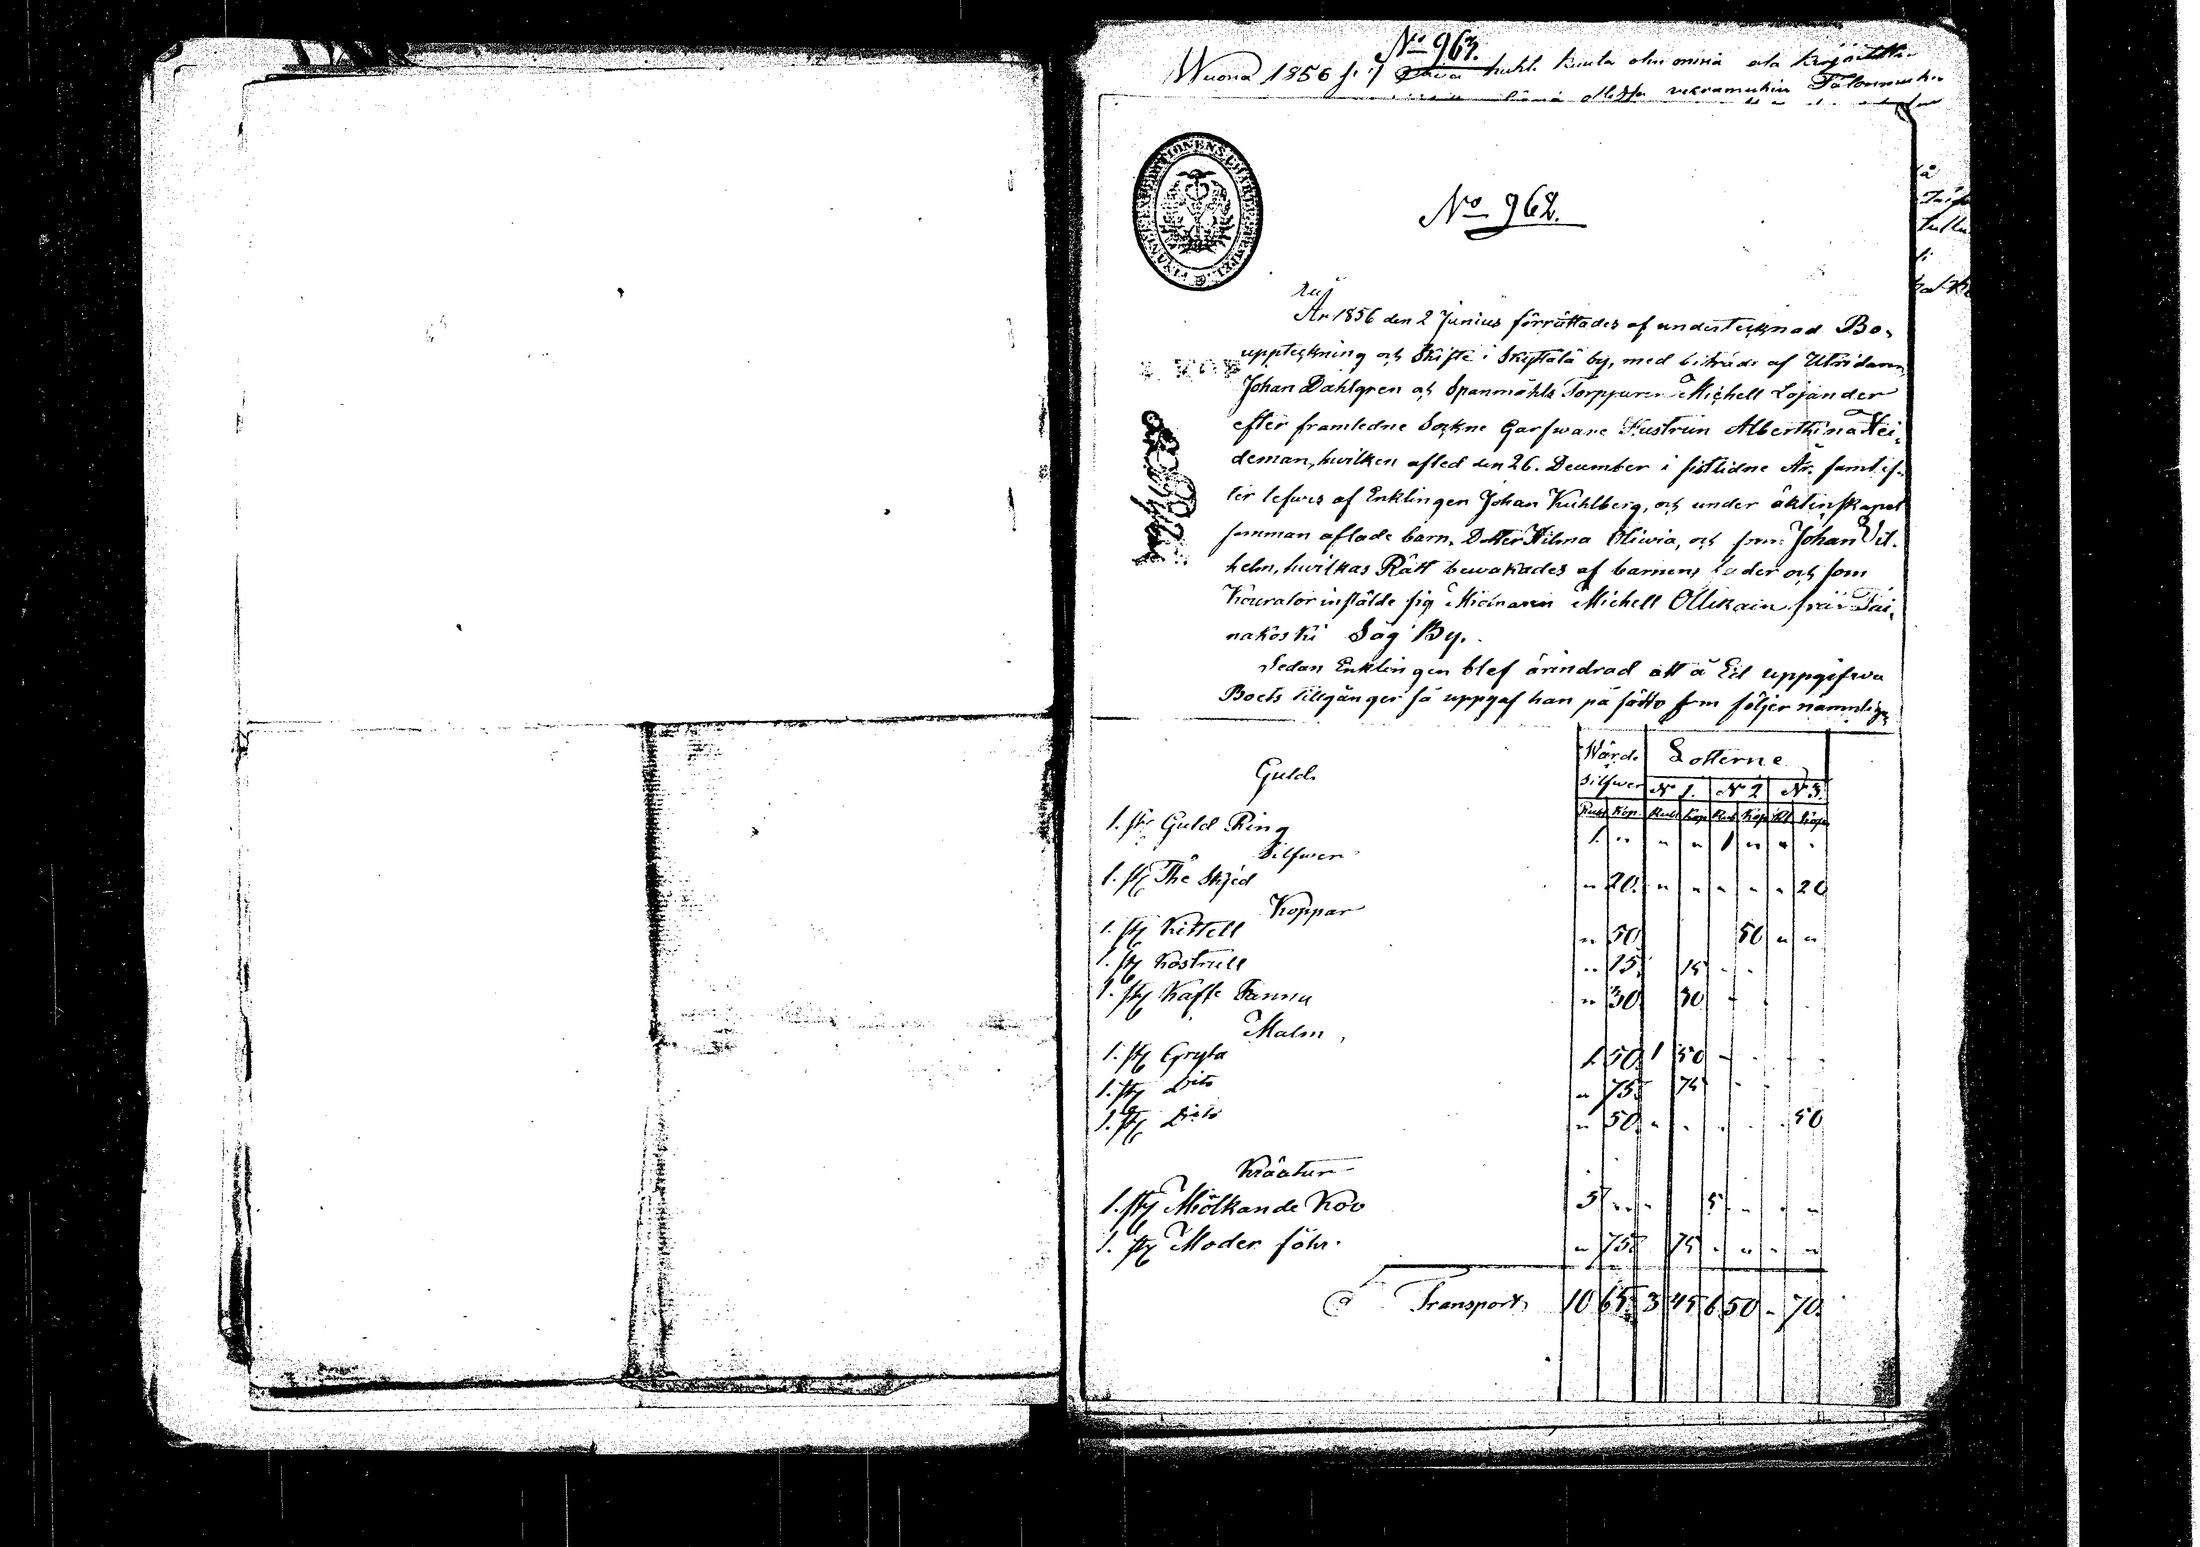 No 963.
Wuona 1856 p. 7 päiwä huht. kuuta olin minä
vieramiehin
FINANCE EXPEDITIONENS CHARTÆ STEMPEL.
No 962.
År 1856 den 2 Junius förrättades af undertecknad Bo-
uppteckning och Skifte i Skyttälä by, med biträde af Utridaren
Johan Dahlgren och Spanmåhls Torpparen Michell Lojander
efter framledne Sockne Garfware Hustrun Alberthina Hei-
deman, hwilken afled den 26. December i sistlidne År. samt ef-
ter lefwes af Enklingen Johan Kuhlberg, och under äktenskapet
samman aflade barn, Dotter Hilma Oliwia, och son Johan Wil-
helm, hwilkas Rätt bewakades af barnens fader och som
Kourator instälde sig Michell Ollikain från Tai-
nakoski Såg By.
Sedan Enklingen blef ärindrad att å Eid uppgifwa
Boets tillgånger så uppgaf han på sätto som följer nämnligen
Wärde Lotterne
Guld. Silfwer No 1. No 2 No 3.
Rubl Kop. Rubl Kop Rub Kop Rl Kop
1. st. Guld Ring 1. " " " 1 " " "
Silfwer
1. st. The Skjed " 20. " " " " " 20
Koppar
1. st. Kittell " 50. 50 " "
1. st. Kostrull " 15. 15 " "
1. st. Kaffe Panna " 30. 30 " "
Malm
1. st. Gryta 1. 50. 1 50 " " " "
1. st. Dito " 75. 75 " "
1. st. Dito " 50. " " " " " 50
Kräatur
1. st. Miölkande Ko 5 " " 5 " " "
1. st. Moder fåhr. " 75. 75 " " " "
Transport, 10 65. 3 45 6 50 " 70.